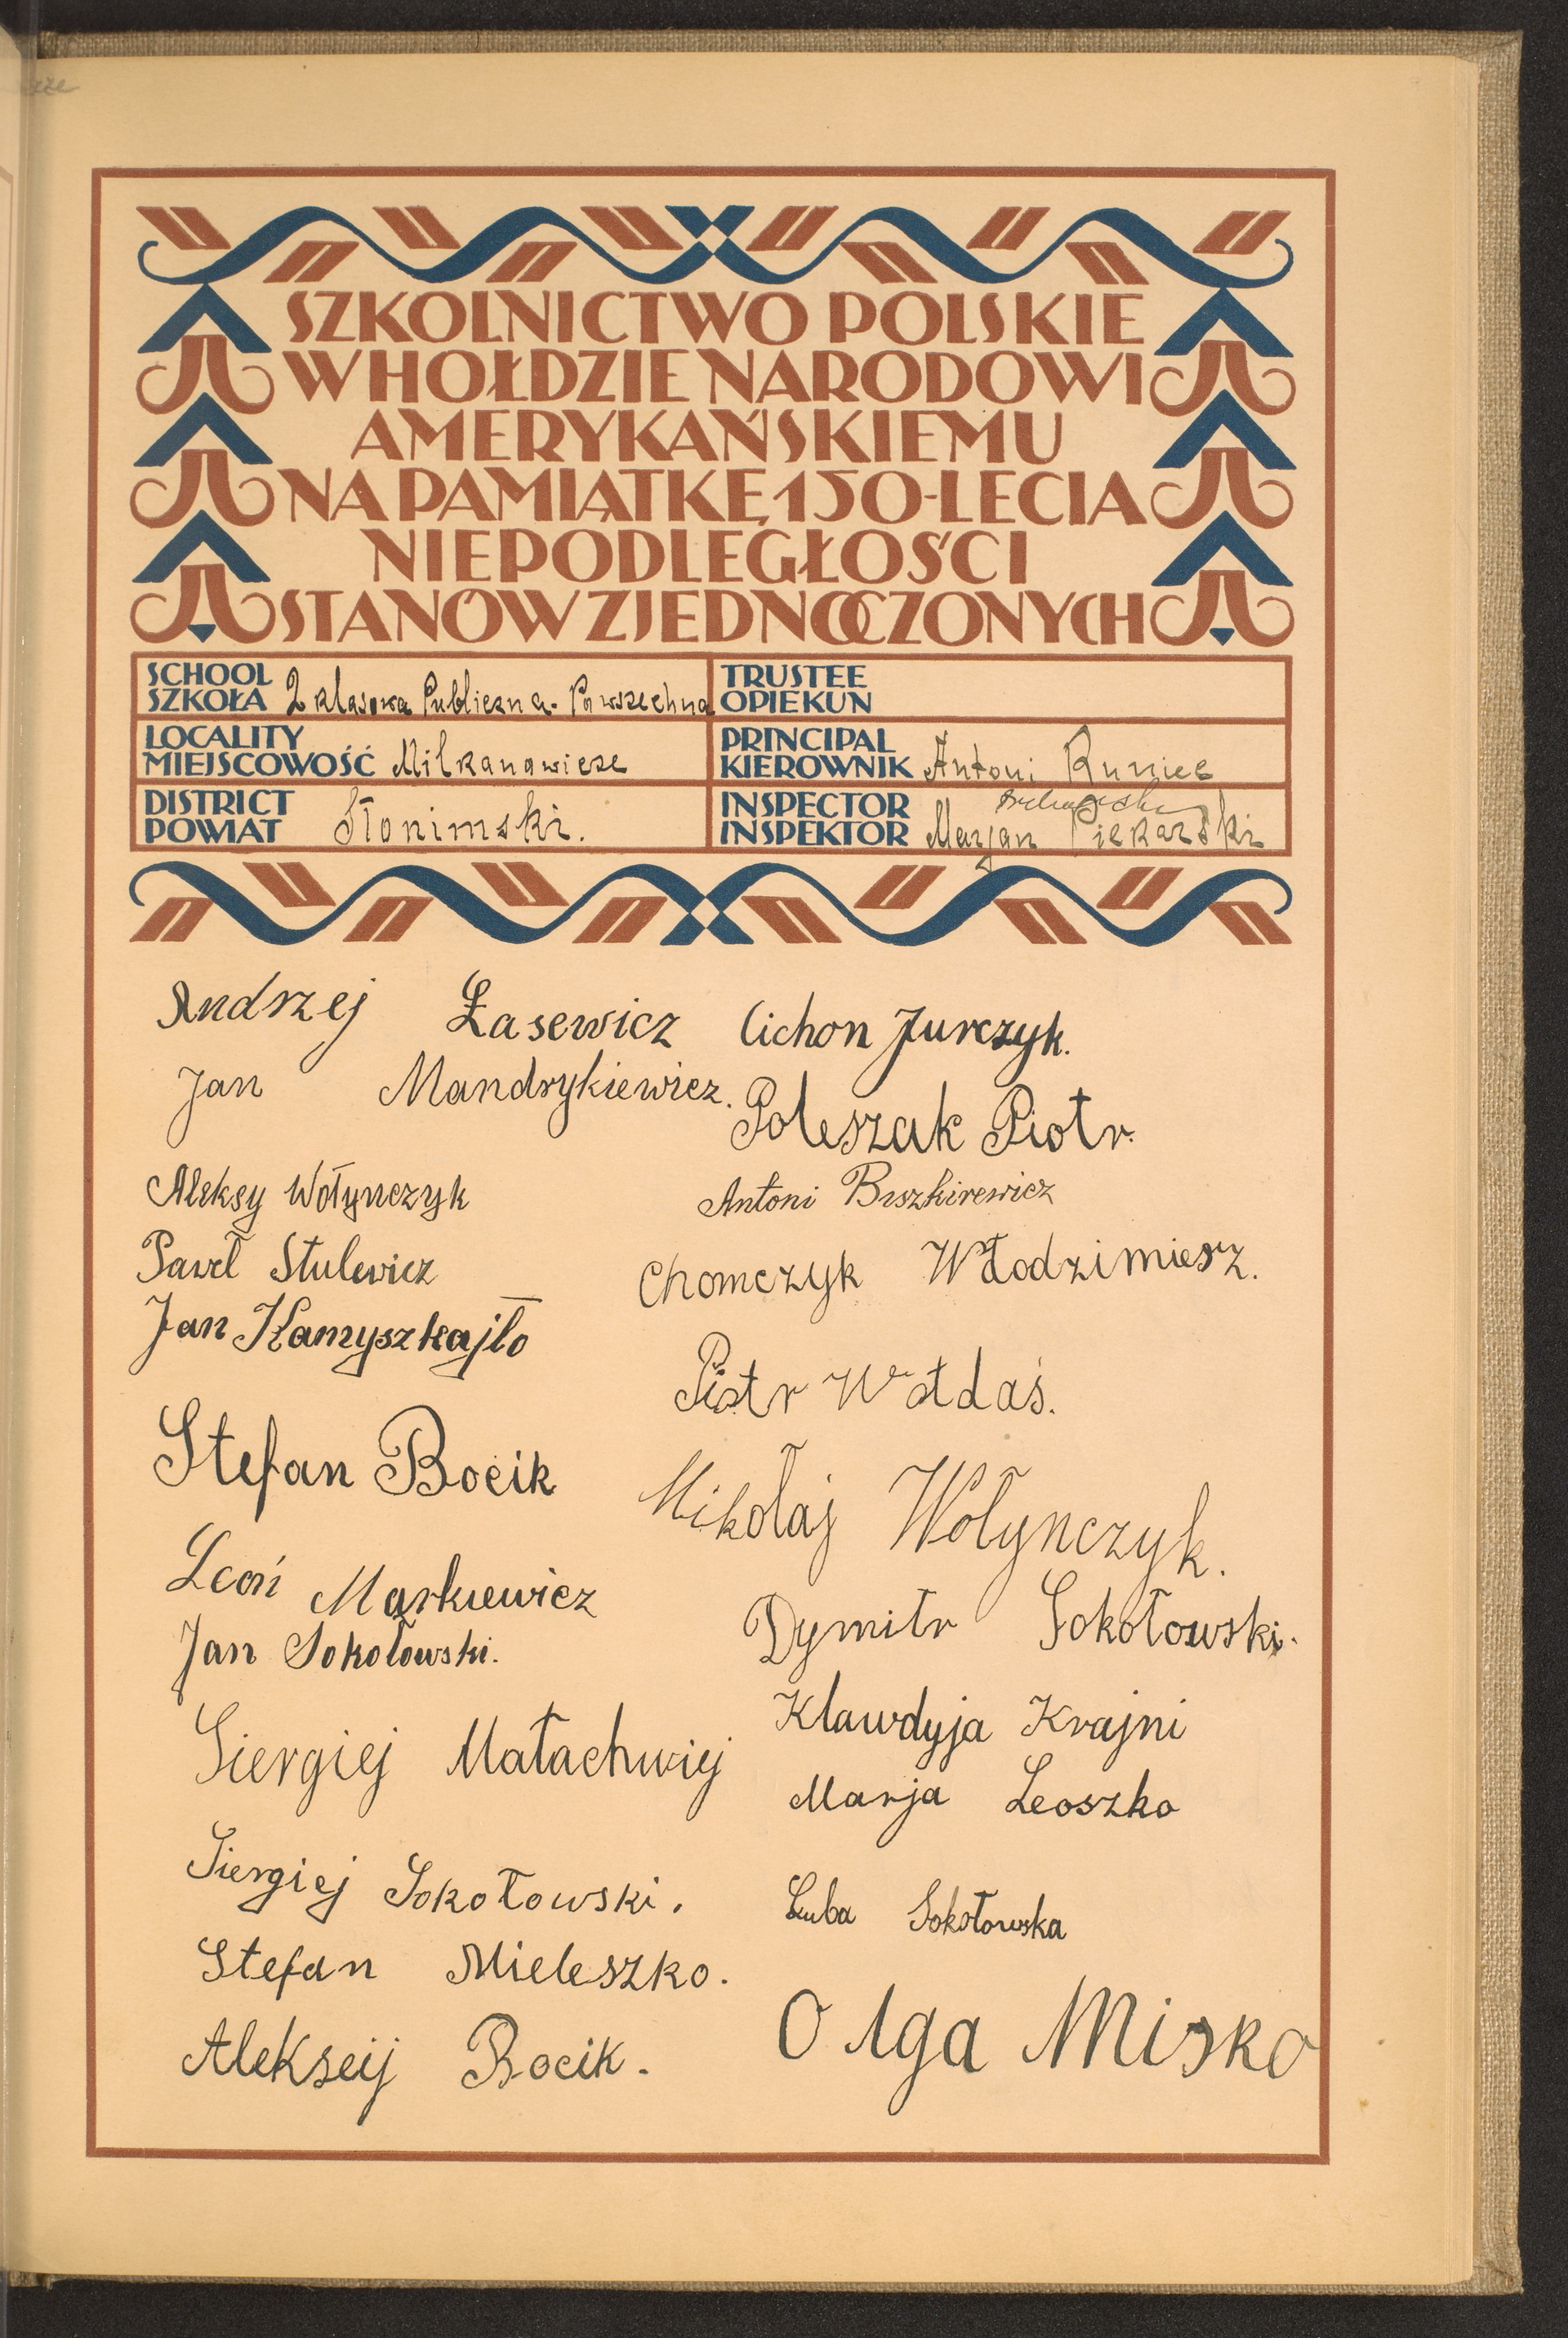 SZKOLNICTWO POLSKIE
W HOŁDZIE NARODOWI
AMERYKAŃSKIEMU
NA PAMIĄTKĘ 150-LECIA
NIEPODLEGŁOŚCI
STANÓW ZJEDNOCZONYCH
SCHOOL
SZKOŁA 2 klasowa Publiczna. Powszechna
TRUSTEE
OPIEKUN
LOCALITY
MIEJSCOWOŚĆ Milkanawicze
PRINCIPAL
KIEROWNIK Antoni Runiec
DISTRICT
POWIAT Słonimski.
INSPECTOR
INSPEKTOR Marjan Piekarski
Andrzej Łasewicz
Jan Mandrykiewicz.
Aleksy Wołynczyk
Paweł Stulewicz
Jan Kamyszkajło
Stefan Bocik
Leoń Markiewicz
Jan Sokołowski.
Siergiej Małachwiej
Siergiej Sokołowski.
Stefan Mieleszko.
Alekseij Bocik.
Cichon Jurczyk.
Poleszak Piotr.
Antoni Biszkirewicz
Chomczyk Włodzimierz.
Piotr Wołdaś.
Mikołaj Wołynczyk.
Dymitr Sokołowski.
Klawdyja Krajni
Marja Leoszko
Luba Sokołowska
Olga Misko